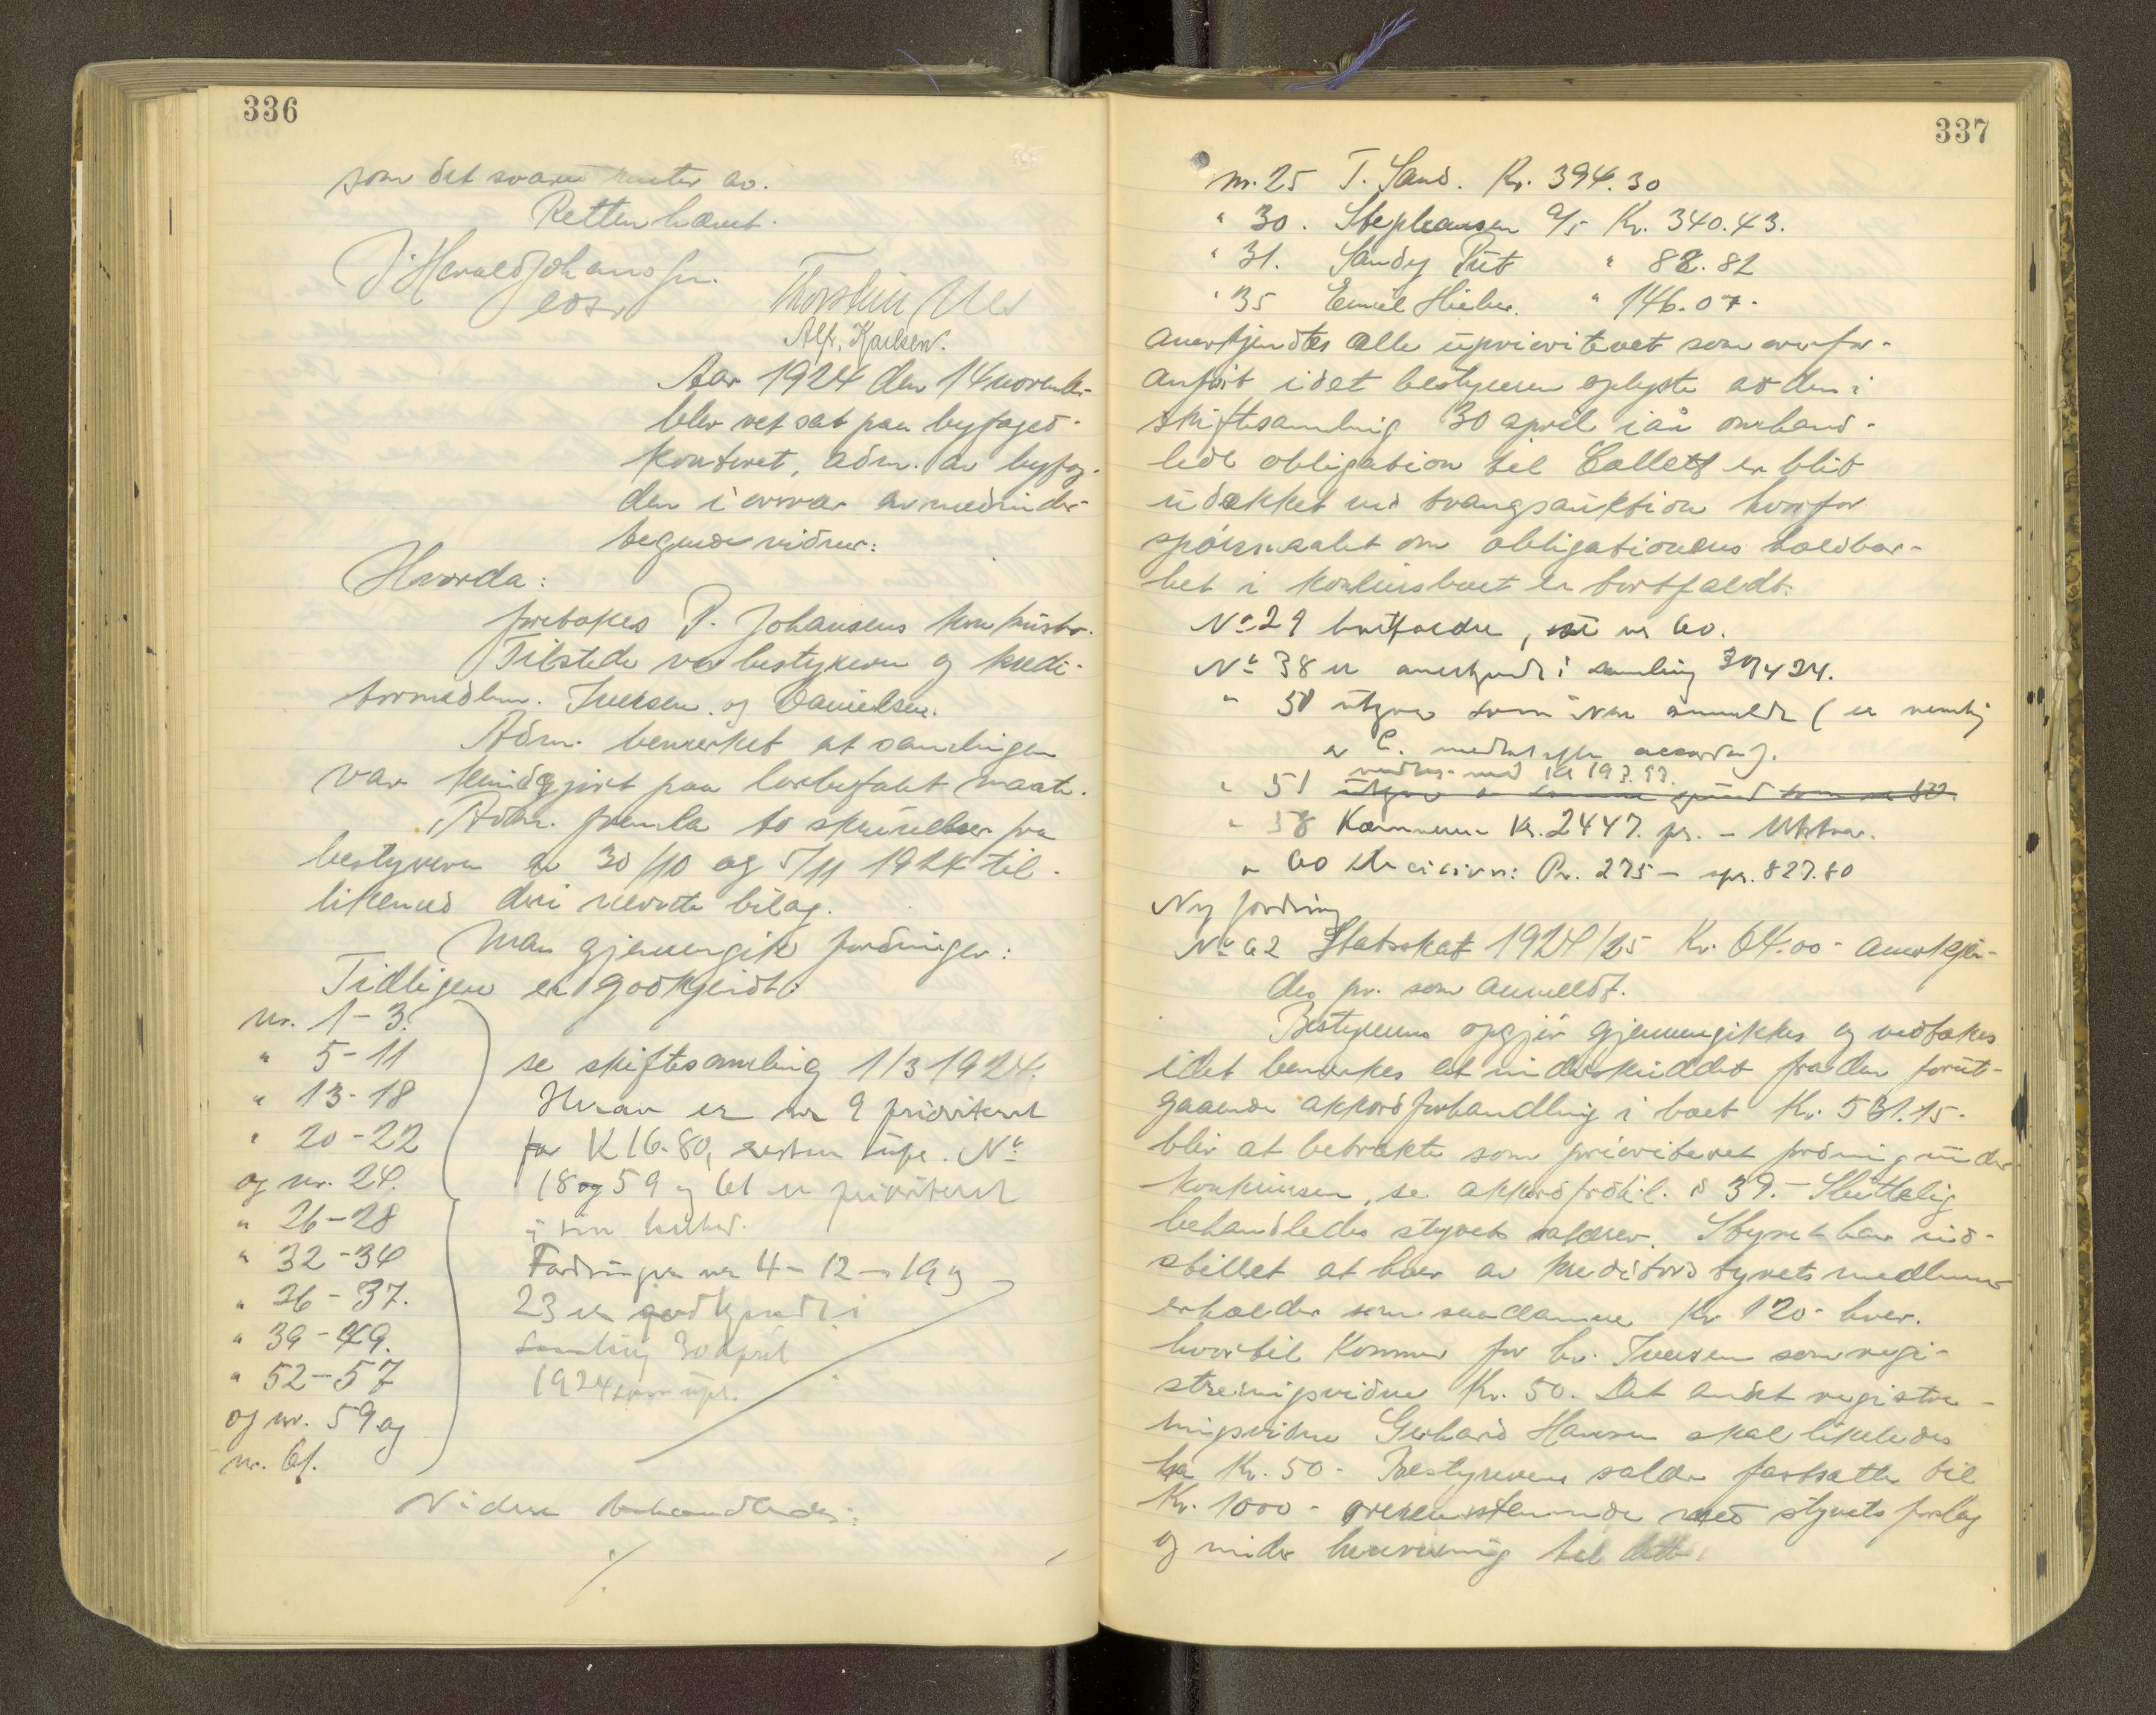 336
som det svares renter av.
Retten hævet.
J. Harald Johannsen.
Thorstein
Alfr. Karlsen.
Aar 1924 den 14 novembr.
blev ret sat paa byfoged-
kontoret, adm. av byfog-
den i nærvær av medunder-
tegnede vidner:
Hvorda:
foretokes P. Johansens konkursbo.
Tilstede var bestyreren og kredi-
tormedlem. Iversen og Danielsen.
Adm. bemerket at samlingen
var kundgjort paa lovbefalt maate.
Adm. fremla to skrivelser fra
bestyreren av 30/10 og 5/11 1924 til-
likemed deri nævnte bilag.
Man gjennemgik fordringer:
Tidligere er godkjendt:
nr. 1-3.
" 5-11
" 13-18
" 20-22
og nr. 24.
" 26-28
" 32-34
" 36-37.
" 39-49.
" 52-57
og nr. 59 og
nr. 61.
se skiftesamling 1/3 1924.
Herav er nr 9 prioriteret
for K 16.80, resten upr. No
18 og 59 og 61 er prioriteret
i sin helhed.
Fordringer nr 4-12-19 og
23 er godkjendt i
samling 30 april
1924 som upr.
Videre behandledes:
./.
337
nr. 25 T. Sand. Kr. 394.30
" 30. Stephansen A/S Kr. 340.43.
" 31. Sandy " 82.82
" 35 Emil " 146.07.
anerkjendtes alle uprioriteret som ovenfor
anført idet bestyreren oplyste at den i
skiftesamling 30 april iår omhand-
lede obligation til Collett er blit
udækket ved tvangsauktion hvorfor
spørsmaalet om obligationens holdbar-
het i konkursboet er bortfaldt.
No 29 bortfalder, se nr 60.
No 38 er anerkjendt i samling 30/4 24.
" 50 utgaar som ikke anmeldt (er nemlig
" 51 utgaar
medtas med Kr 193.93.
" 58 Kæmneren Kr. 2447. pr. -
" 60 Pr. 275 - upr. 827.80
Ny fordring
No 62 Statsskat 1924/25 Kr. 64.00 - anerkjen-
des pr. som anmeldt.
Bestyrerens opgjør gjennemgikkes og vedtokes
idet bemerkes at underskuddet fra den forut-
gaaende akkordforhandling i boet Kr. 561.15.
blir at betrakte som prioriteret fordring under
konkursen, se akkordfrdhl. § 39. - Sluttelig
behandledes styrets salærer. Styret har ind-
stillet at hver av kreditorstyrets medlemmer
erholder som saadanne Kr 120 - hver.
hvortil kommer for hr. Iversen som regi-
streringsvidne Kr. 50. Det andet registre-
ringsvidne Gerhard Hansen skal likeledes
ha Kr. 50 - Bestyrerens salær fastsattes til
Kr. 1000 - overensstemmende med styrets forslag
og under henvisning til dette